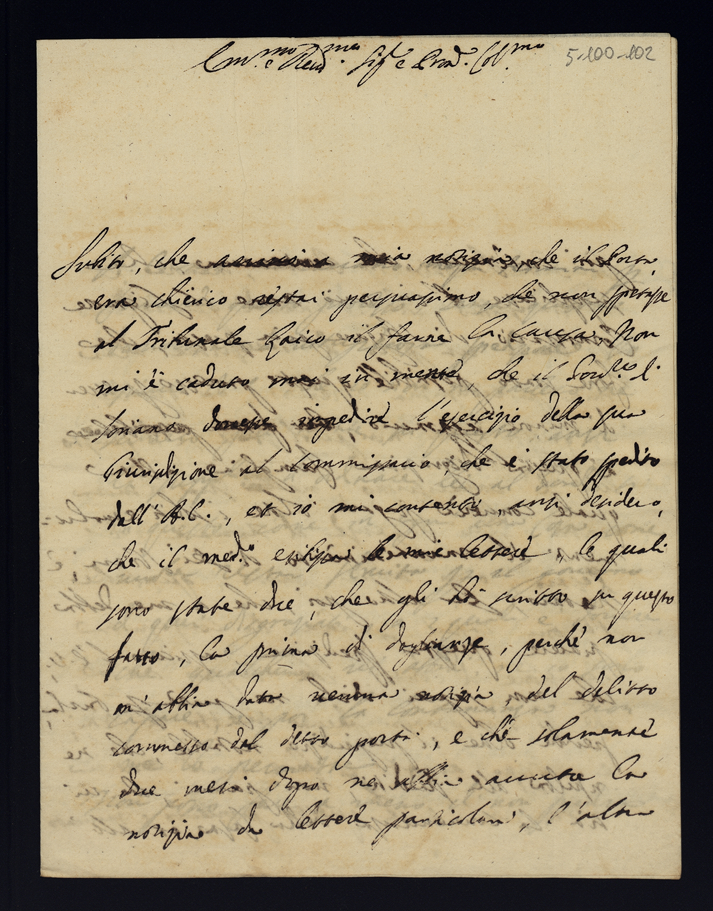 Em.mo e Rev.mo Sig.r e Pron. Col.mo
5-100-102
Subito, che mia notizia, che il Porta
era chierico restai persuasissimo, che non spettasse
al Tribunale laico il farne la causa. Non
mi è caduto mai in mente, che il
impedire l'esercizio della sua
al Commissario, che è stato spedito
dall'A.C., et io mi contento, anzi desidero,
che il med.o esibisca le mie lettere, le quali
sono state due, che gli hò scritto su questo
fatto, la prima di doglianza, perchè non
m'abbia dato veruna notizia, del delitto
commesso dal detto porta, e che solamente
due mesi dopo ne abbia la
notizia da lettere particolari, l'altra